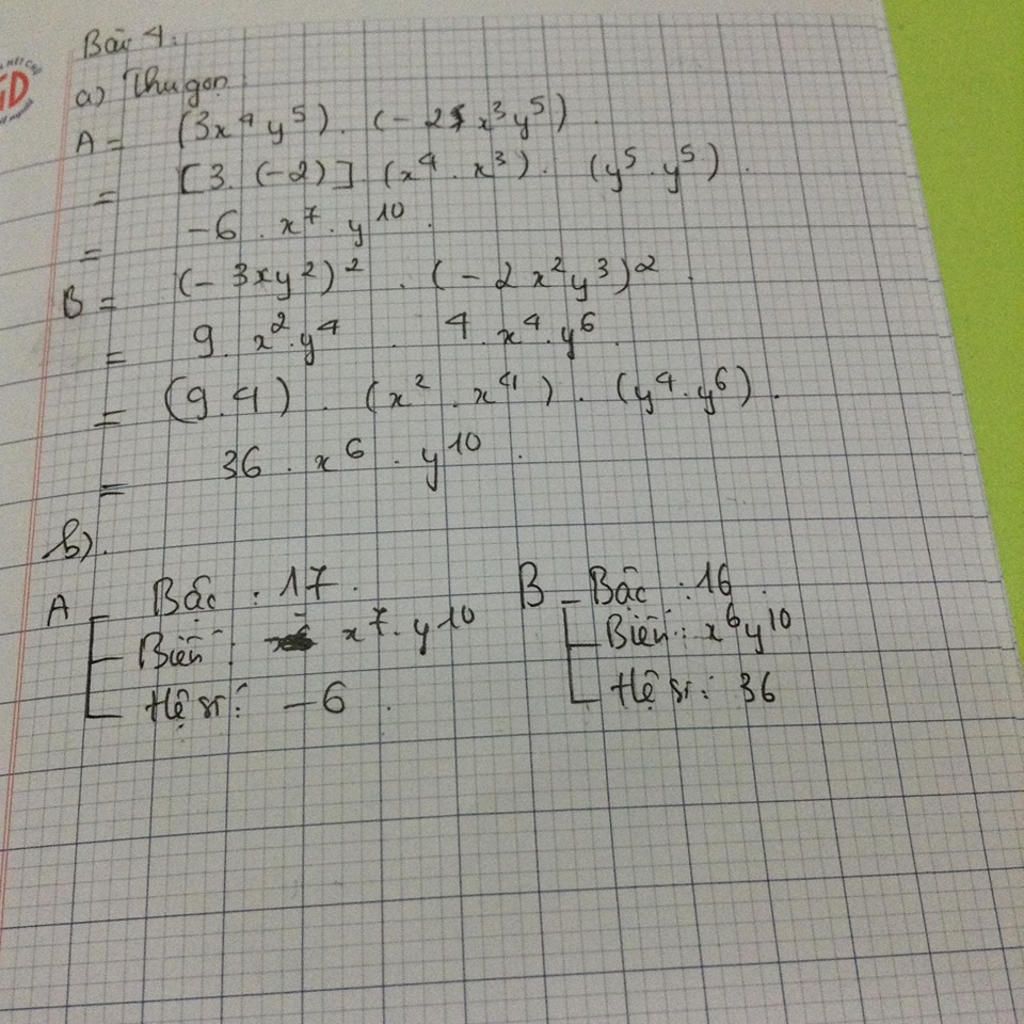 Bài 4:
a) Thu gọn
A = (3x⁴y⁵) . (-2x³y⁵).
= [3.(-2)] (x⁴ . x³) . (y⁵ . y⁵).
= -6 . x⁷ . y¹⁰.
B = (-3xy²)² . (-2x²y³)².
= 9. x².y⁴ . 4. x⁴.y⁶.
= (9.4) . (x² . x⁴) . (y⁴.y⁶).
= 36 . x⁶ . y¹⁰.
b).
A - Bậc : 17. B - Bậc : 16.
- Biến : x⁷.y¹⁰ - Biến : x⁶y¹⁰
- Hệ số: -6. - Hệ số: 36